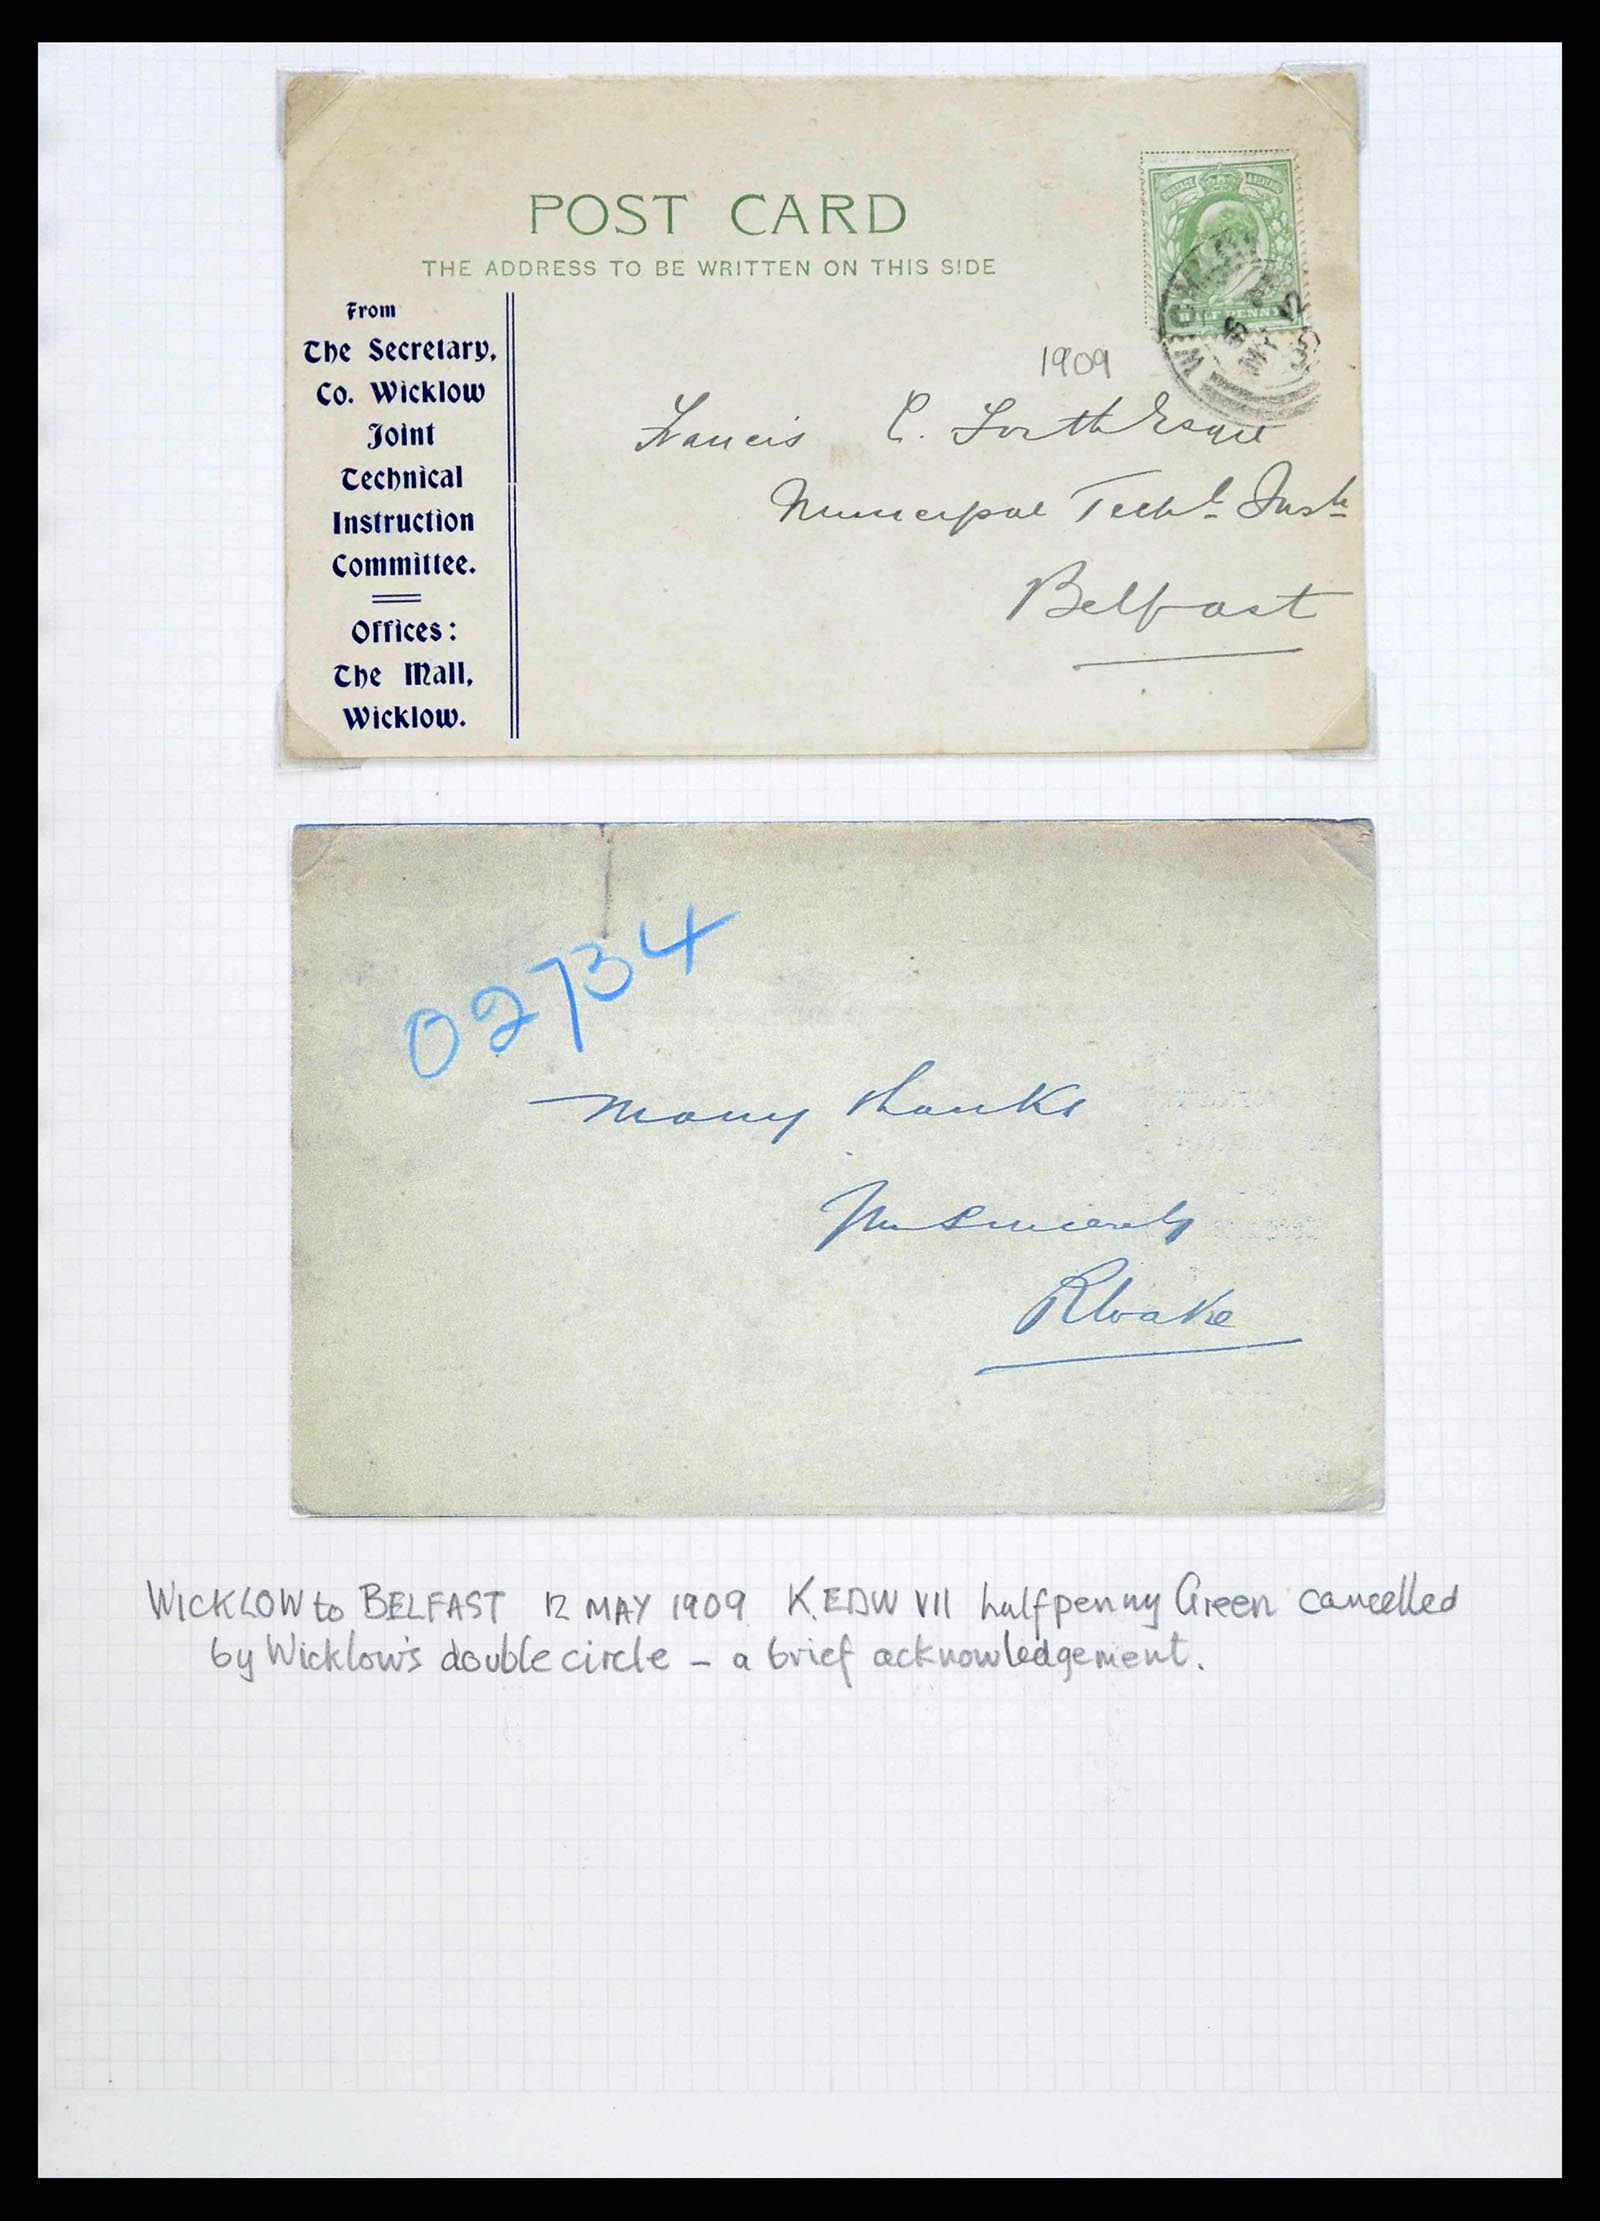 POST CARD
THE ADDRESS TO BE WRITTEN ON THIS SIDE
From
The Secretary,
Co. Wicklow
Joint
Technical
Instruction
Committee.
Offices:
The Mall,
Wicklow.
POSTAGE & REVENUE
HALF PENNY
WICKLOW
MY 12
09
1909
Francis C. Forth Esqre
Municipal Techl Inste
Belfast
02734
Many thanks
Yrs Sincerely
RBlake
WICKLOW to BELFAST 12 MAY 1909 K.EDW VII halfpenny Green cancelled
by Wicklow's double circle – a brief acknowledgement.